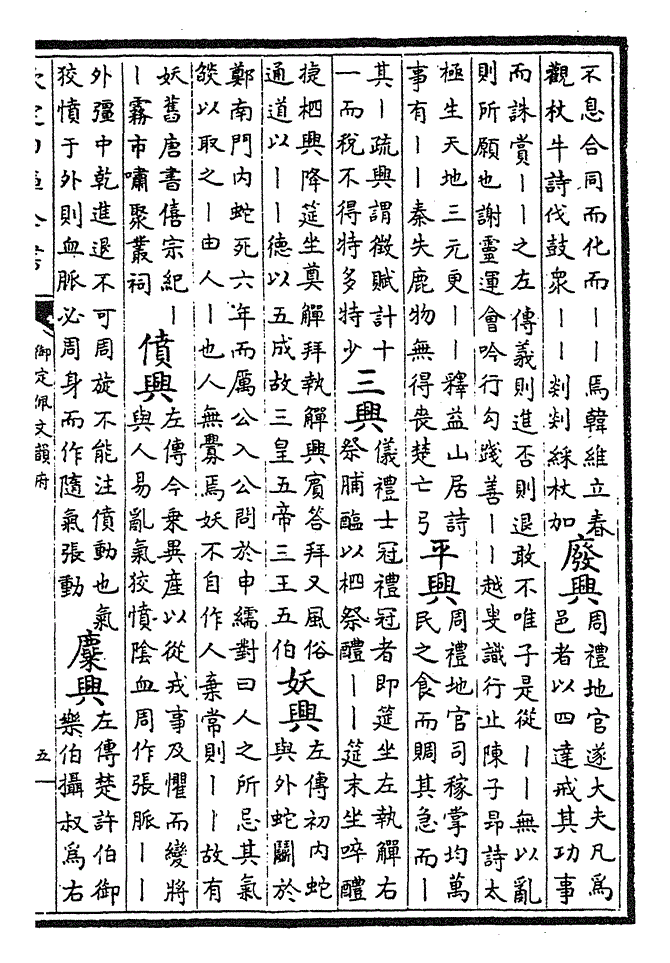 不息合同而化而丨丨焉韓維立春
觀杖牛詩伐鼓衆丨丨剡剡綵杖加
廢興
周禮地官遂大夫凡爲
邑者以四達戒其功事
而誅賞丨丨之左傳義則進否則退敢不唯子是從丨丨無以亂
則所願也謝靈運會吟行勾踐善丨丨越叟識行止陳子昂詩太
極生天地三元更丨丨釋益山居詩
事有丨丨秦失鹿物無得喪楚亡弓
平興
周禮地官司稼掌均萬
民之食而賙其急而丨
其丨疏興謂徵賦計十
一而稅不得特多特少
三興
儀禮士冠禮冠者即筵坐左執觶右
祭脯醢以柶祭醴丨丨筵末坐啐醴
捷柶興降筵坐奠觶拜執觶興賓答拜又風俗
通道以丨丨德以五成故三皇五帝三王五伯
妖興
左傳初内蛇
與外蛇鬭於
鄭南門内蛇死六年而厲公入公問於申繻對曰人之所忌其氣
燄以取之丨由人丨也人無釁焉妖不自作人棄常則丨丨故有
妖舊唐書僖宗紀丨
丨霧市嘯聚叢祠
僨興
左傳今乗異產以從戎事及懼而變將
與人易亂氣狡憤陰血周作張脈丨丨
外彊中乾進退不可周旋不能注僨動也氣
狡憤于外則血脈必周身而作隨氣張動
麋興
左傳楚許伯御
樂伯攝叔爲右
御定佩文韻府
五